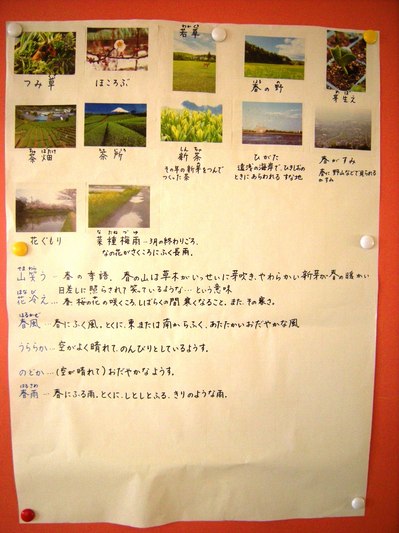 つみ草
ほころぶ
わかくさ
若草
はる の
春の野
めば
芽生え
ちゃ ばたけ
茶畑
ちゃ どころ
茶所
しん ちゃ
新茶
その年の新芽をつんで
つくった茶
ひがた
遠浅の海岸で、ひきしおの
ときにあらわれる すな地
春がすみ
春に野山などで見られる
かすみ
花ぐもり
なたね づゆ
菜種梅雨 … 3月の終わりごろ、
なの花がさくころにふく長雨。
やま わら
山笑う … 春の季語。春の山は草木がいっせいに芽吹き、やわらかい新芽が春の暖かい
日差しに照らされて笑っているような…という意味
はな び
花冷え … 春、桜の花の咲くころ、しばらくの間 寒くなること。また、その寒さ。
はるかぜ
春風 … 春にふく風。とくに、東または南からふく、あたたかいおだやかな風
うららか … 空がよく晴れて、のんびりとしているようす。
のどか … (空が晴れて)おだやかなようす。
はるさめ
春雨 … 春にふる雨。とくに、しとしとふる、きりのような雨。